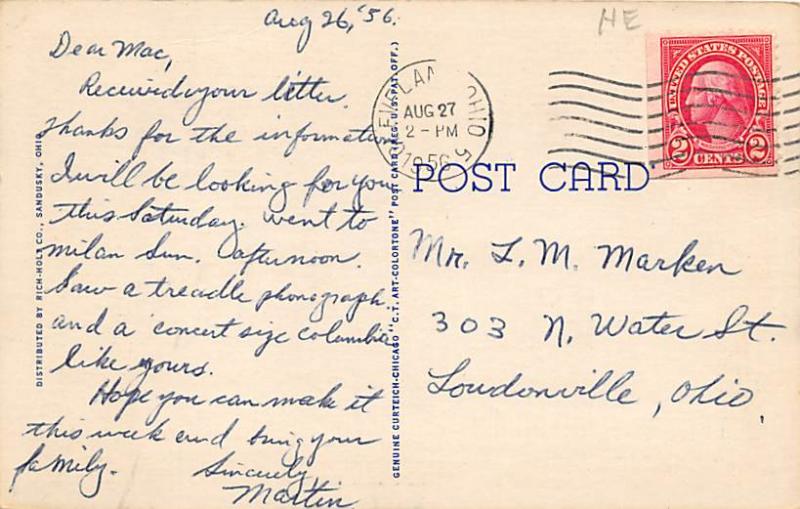 Aug 26, '56.
HE
Dear Mac,
Received your letter.
Thanks for the information
I will be looking for you
this Saturday. went to
milan Sun. afternoon.
Saw a treadle phonograph,
and a concert size columbia
like yours.
Hope you can make it
this week end bring your
family.
Sincerely,
Martin
DISTRIBUTED BY RICH-HOLT CO., SANDUSKY, OHIO
GENUINE CURTEICH-CHICAGO "C.T. ART-COLORTONE" POST CARD (REG. U.S. PAT. OFF.)
CLEVELAND OHIO 5
AUG 27
2 - PM
1956
UNITED STATES POSTAGE
2 CENTS 2
POST CARD
Mr. L. M. Marken
303 N. Water St.
Loudonville, Ohio,